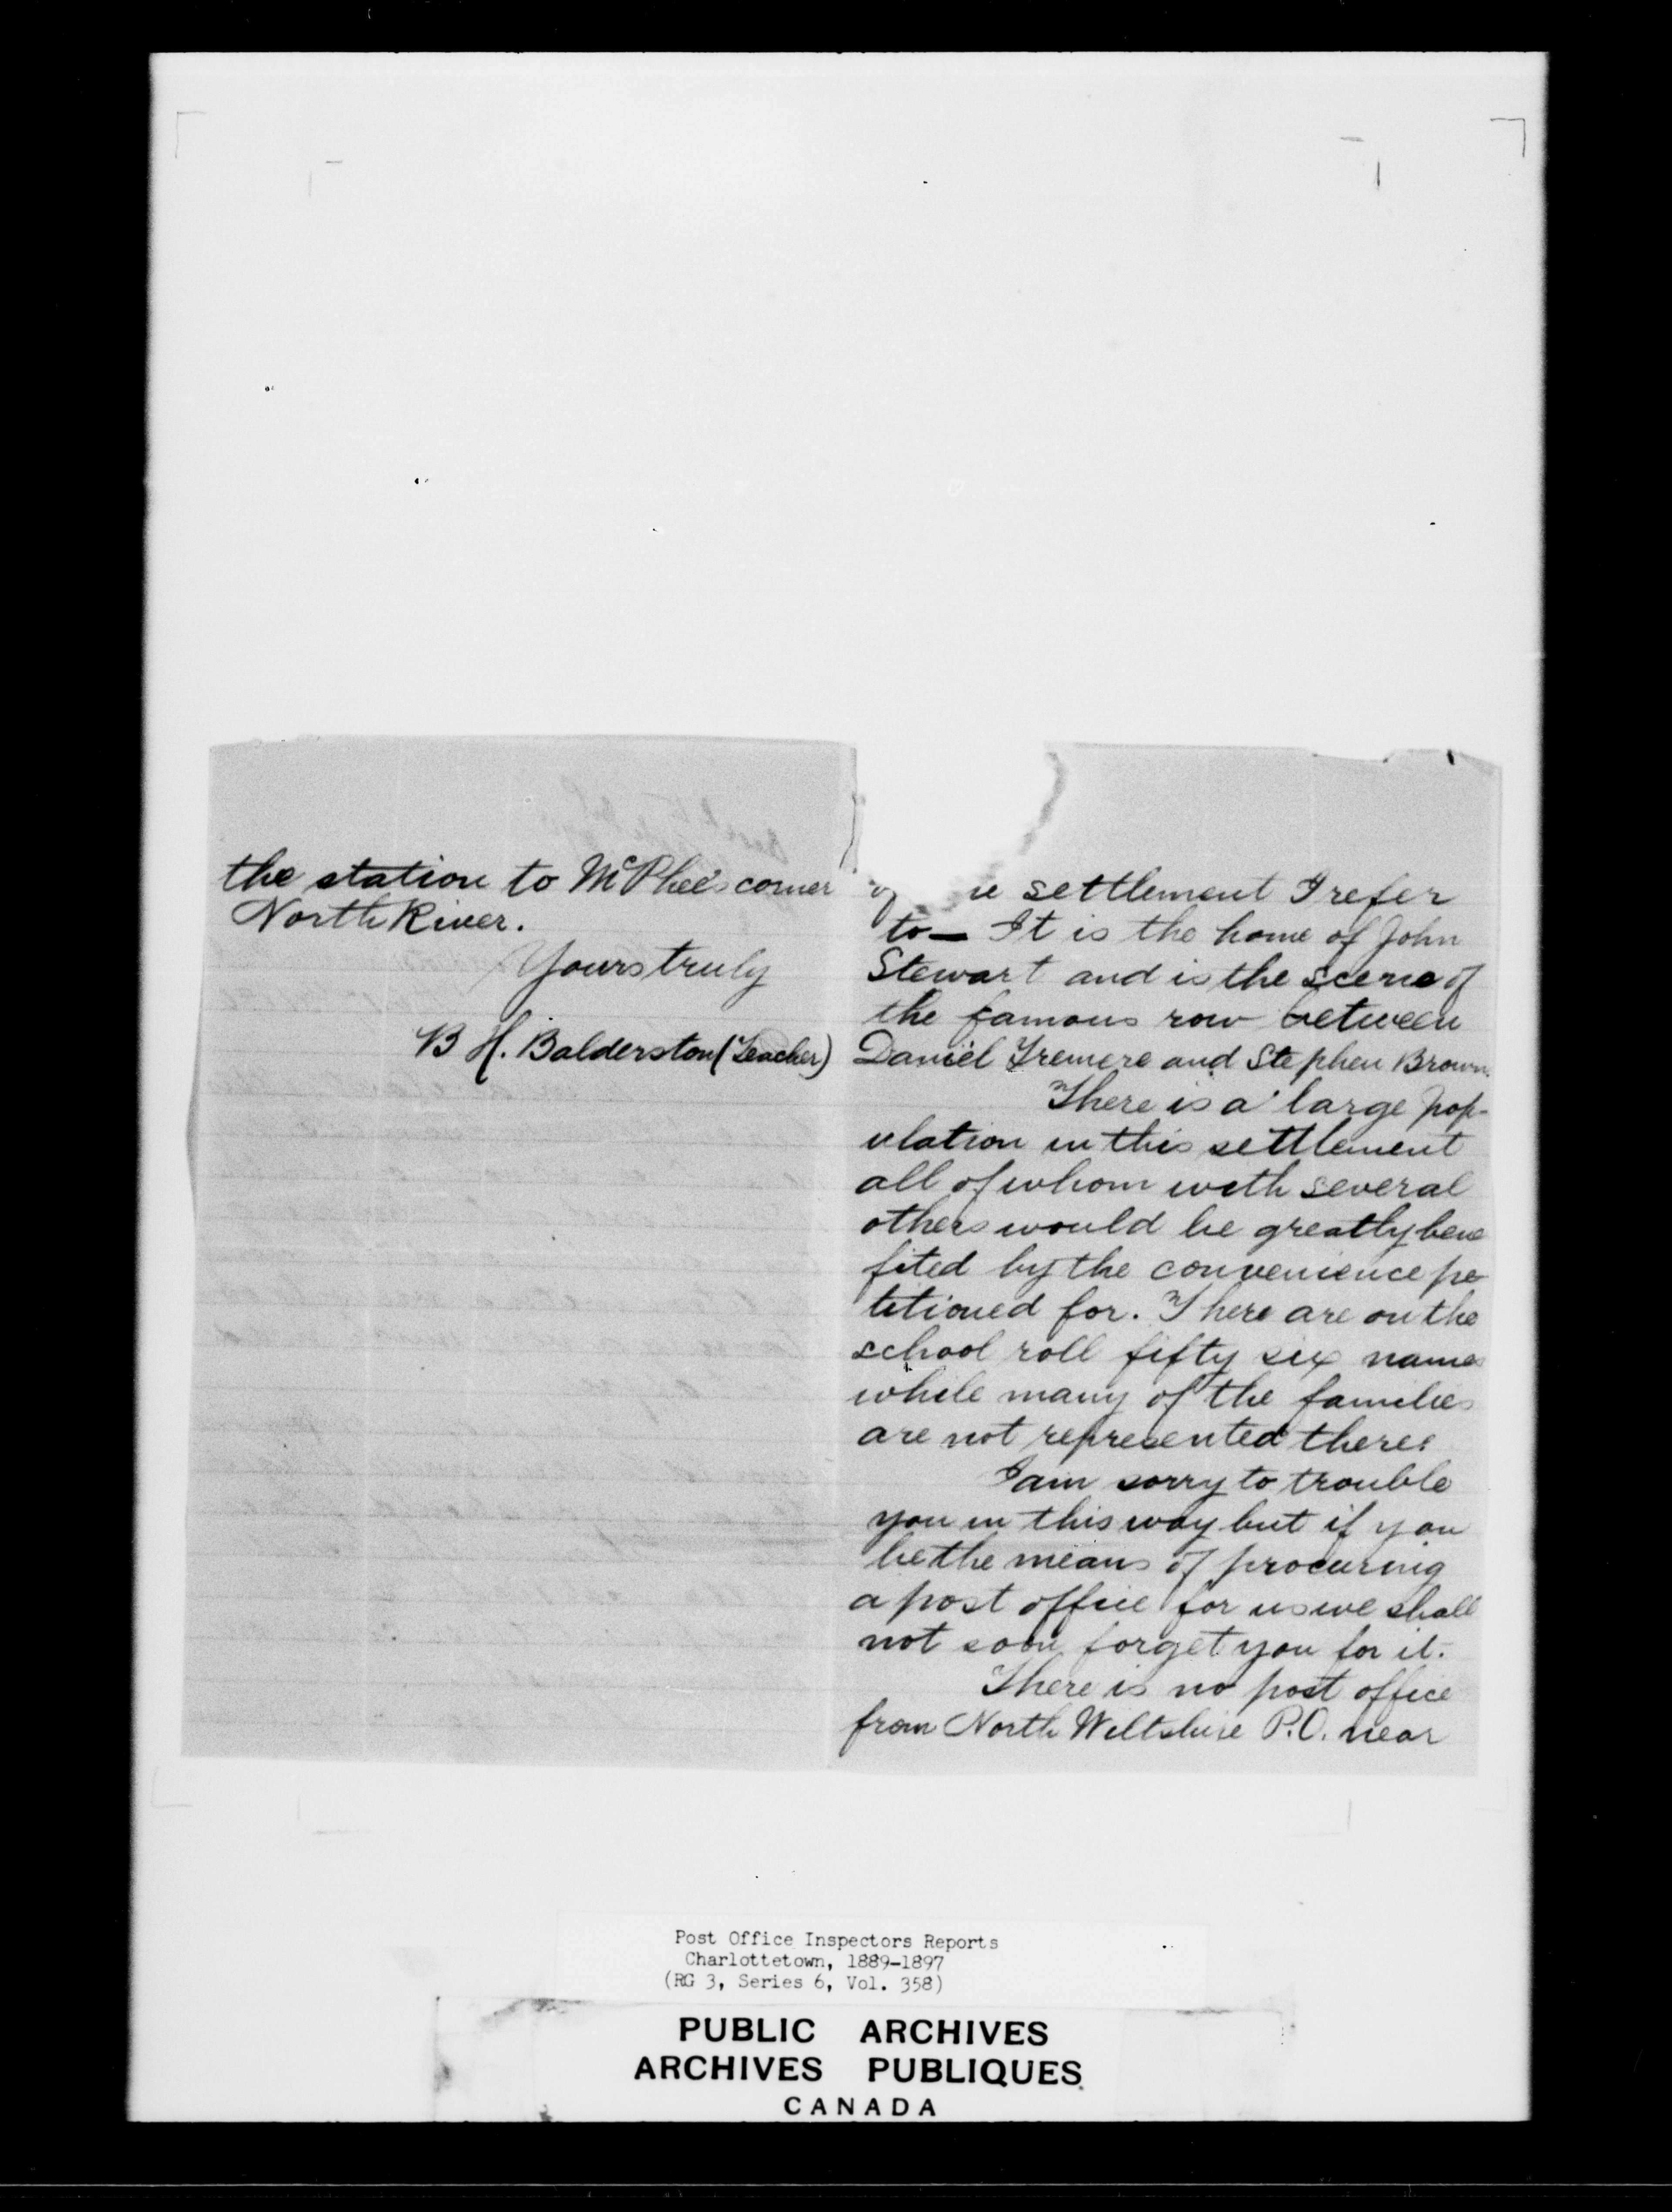 the station to McPhee's corner
North River.
Yours truly
B H. Balderston (Teacher)
settlement I refer
to — It is the home of John
Stewart and is the scene of
the famous row between
Daniel Tremere and Stephen Brown.
There is a large pop-
ulation in this settlement
all of whom with several
others would be greatly bene
fited by the convenience pe
titioned for. There are on the
school roll fifty six names
while many of the families
are not represented there.
I am sorry to trouble
you in this way but if you
be the means of procuring
a post office for us we shall
not soon forget you for it.
There is no post office
from North Wiltshire P.O. near
Post Office Inspectors Reports
Charlottetown, 1889-1897
(RG 3, Series 6, Vol. 358)
PUBLIC ARCHIVES
ARCHIVES PUBLIQUES
CANADA